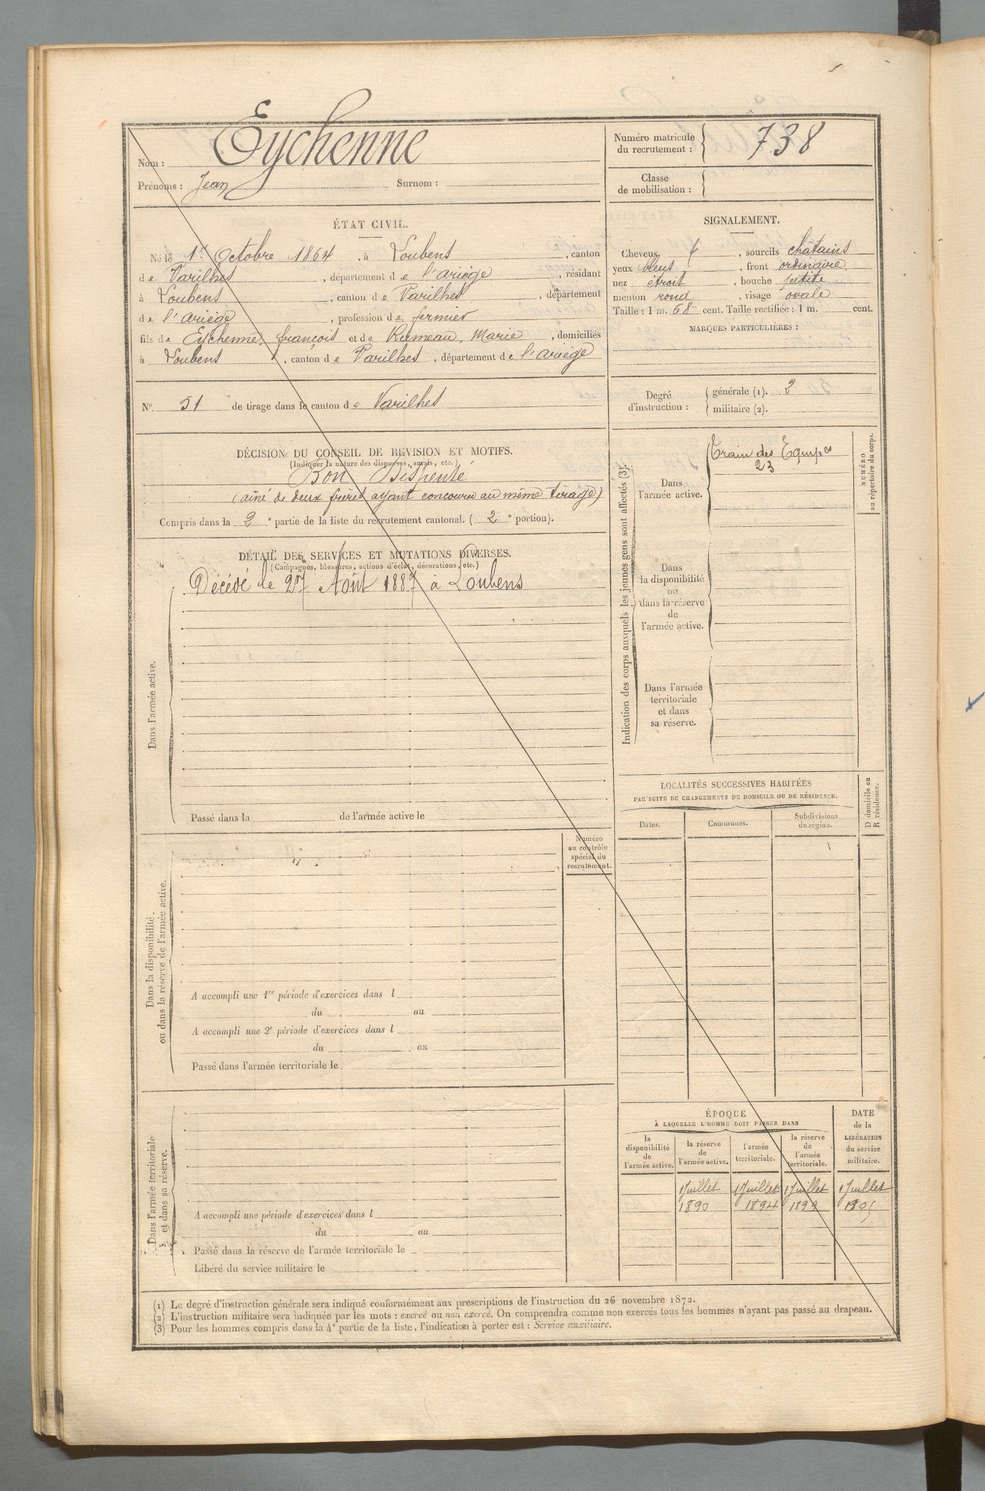 Nom : Eychenne
Prénoms : Jean Surnom :
Numéro matricule du recrutement : 738
Classe de mobilisation :
ÉTAT CIVIL.
Né le 1er Octobre 1864, à Loubens, canton
de Varilhes, département de l'ariège, résidant
à Loubens, canton de Varilhes, département
de l'ariège, profession de fermier
fils de Eychenne, françois et de Rumeau, Marie, domiciliés
à Loubens, canton de Varilhes, département de l'ariège
N° 51 de tirage dans le canton de Varilhes
SIGNALEMENT.
Cheveux , sourcils châtains
yeux bleus, front ordinaire
nez étroit, bouche petite
menton rond, visage ovale
Taille : 1 m. 68 cent. Taille rectifiée : 1 m. cent.
MARQUES PARTICULIÈRES :
Degré d'instruction : générale (1). 2
militaire (2).
DÉCISION DU CONSEIL DE REVISION ET MOTIFS.
(Indiquer la nature des dispenses, sursis, etc.)
Bon Dispensé
(aîné de deux frères ayant concouru au même tirage)
Compris dans la 2e partie de la liste du recrutement cantonal. (2e portion).
DÉTAIL DES SERVICES ET MUTATIONS DIVERSES.
(Campagnes, blessures, actions d'éclat, décorations, etc.)
Dans l'armée active.
Décédé le 27 Août 1887 à Loubens
Passé dans la de l'armée active le
Indication des corps auxquels les jeunes gens sont affectés (3).
Dans l'armée active.
Train des Equip es
23
NUMÉRO au répertoire du corps.
Dans la disponibilité ou dans la réserve de l'armée active.
Dans l'armée territoriale et dans sa réserve.
LOCALITÉS SUCCESSIVES HABITÉES
PAR SUITE DE CHANGEMENTS DE DOMICILE OU DE RÉSIDENCE.
Dates. Communes. Subdivisions de région.
D domicile ou R résidence.
Numéro au contrôle spécial du recrutement.
Dans la disponibilité ou dans la réserve de l'armée active.
A accompli une 1re période d'exercices dans l
du au
A accompli une 2e période d'exercices dans l
du au
Passé dans l'armée territoriale le
Dans l'armée territoriale et dans sa réserve.
A accompli une période d'exercices dans l
du au
Passé dans la réserve de l'armée territoriale le
Libéré du service militaire le
ÉPOQUE
À LAQUELLE L'HOMME DOIT PASSER DANS
la disponibilité de l'armée active.
la réserve de l'armée active.
l'armée territoriale.
la réserve de l'armée territoriale.
DATE de la LIBÉRATION du service militaire.
1 Juillet 1 Juillet 1 Juillet 1 Juillet
1890 1894 1899 1905
(1) Le degré d'instruction générale sera indiqué conformément aux prescriptions de l'instruction du 26 novembre 1872.
(2) L'instruction militaire sera indiquée par les mots : exercé ou non exercé. On comprendra comme non exercés tous les hommes n'ayant pas passé au drapeau.
(3) Pour les hommes compris dans la 4e partie de la liste, l'indication à porter est : Service auxiliaire.